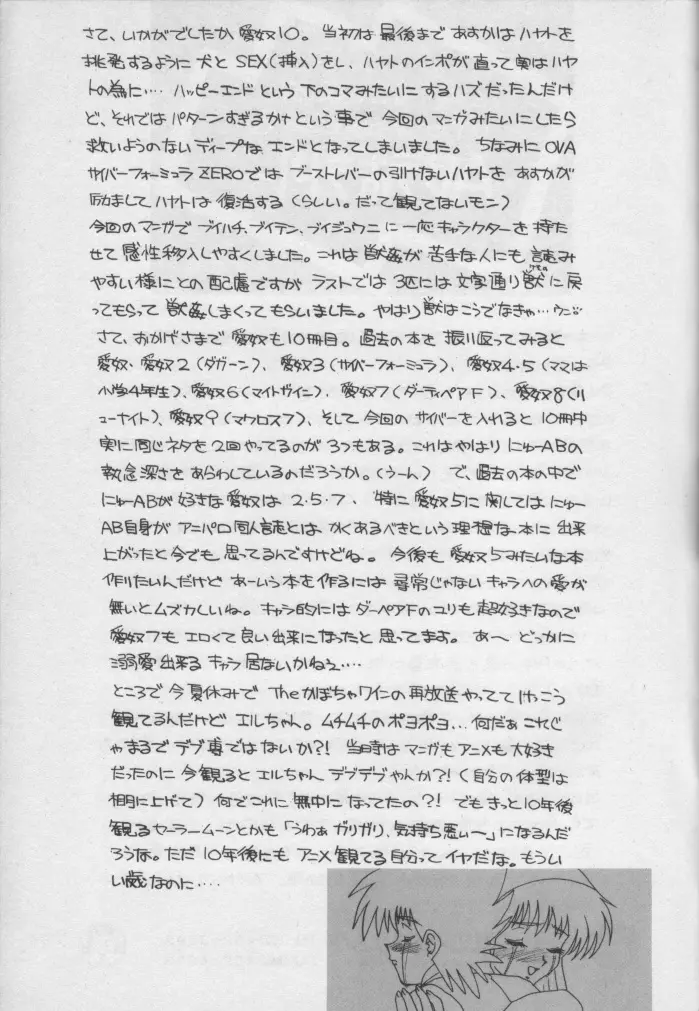 さて、いかがでしたか愛奴10。当初は最後まであすかはハヤトを
挑発するように犬とSEX(挿入)をし、ハヤトのインポが直って実はハヤ
トの為に…。ハッピーエンドという下のコマみたいにするハズだったんだけ
ど、それではパターンすぎるかナという事で今回のマンガみたいにしたら
救いようのないディープなエンドとなってしまいました。ちなみにOVA
サイバーフォーミュラZEROではブーストレバーの引けないハヤトをあすかが
励ましてハヤトは復活する(らしい。だって観てないモン)
今回のマンガでブイハチ、ブイテン、ブイジュウニに一応キャラクターを持た
せて感性移入しやすくしました。これは獣姦が苦手な人にも読み
やすい様にとの配慮ですがラストでは3匹には文字通り獣に戻
ってもらって獣姦しまくってもらいました。やはり獣はこうでなきゃ…
さて、おかげさまで愛奴も10冊目。過去の本を振り返ってみると
愛奴・愛奴2(ダガーン)、愛奴3(サイバーフォーミュラ)、愛奴4・5(ママは
小学4年生)、愛奴6(マイトガイン)、愛奴7(ダーティペアF)、愛奴8(リ
ューナイト)、愛奴9(マクロス7)、そして今回のサイバーを入れると10冊中
実に同じネタを2回やってるのが3つもある。これはやはりにゅーABの
執念深さをあらわしているのだろうか。(うーん)で、過去の本の中で
にゅーABが好きな愛奴は2・5・7、特に愛奴5に関してはにゅー
AB自身がアニパロ同人誌とはかくあるべきという理想な本に出来
上がったと今でも思ってるんですけどね。今後も愛奴5みたいな本
作りたいんだけどあーいう本を作るには尋常じゃないキャラへの愛が
無いとムズカしいね。キャラ的にはダーペアFのユリも超好きなので
愛奴7もエロくて良い出来になったと思ってます。あ〜どっかに
溺愛出来るキャラ居ないかねぇ…。
ところで今夏休みでTheかぼちゃワインの再放送やっててけっこう
観てるんだけどエルちゃん。ムチムチのポヨポヨ…何だぁこれじ
ゃまるでデブ専ではないか?!当時はマンガもアニメも大好き
だったのに今観るとエルちゃんデブデブやんか?!(自分の体型は
棚に上げて)何でこれに無中になってたの?!でもきっと10年後
観るセーラームーンとかも「うわぁガリガリ、気持ち悪ぃ〜」になるんだ
ろうな。ただ10年後にもアニメ観てる自分ってイヤだな。もうい
い歳なのに…。